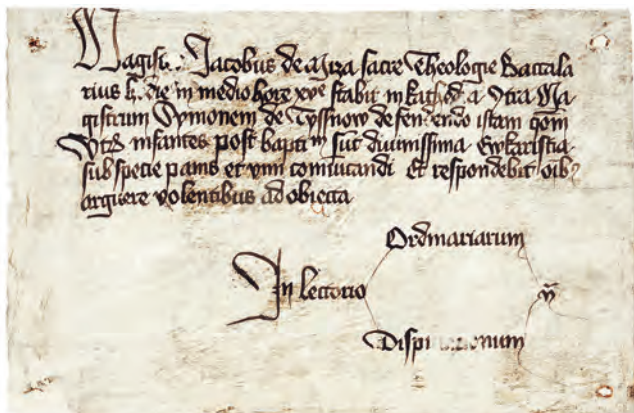 Magister Jacobus de Miza sacre Theologie Baccala
rius h. die in medio hore xve stabit in kathed. a 9tra Ma
gistrum Symonem de Tyssnow defendendo istam qom
Vtrū infantes post baptīm sūt diuinissima Ewkaristia
sub specie panis et vini coīcandi Et respondebit oīb9
arguere volentibus ad obiecta
Ordinariarum
In lectorio
Disputacionum